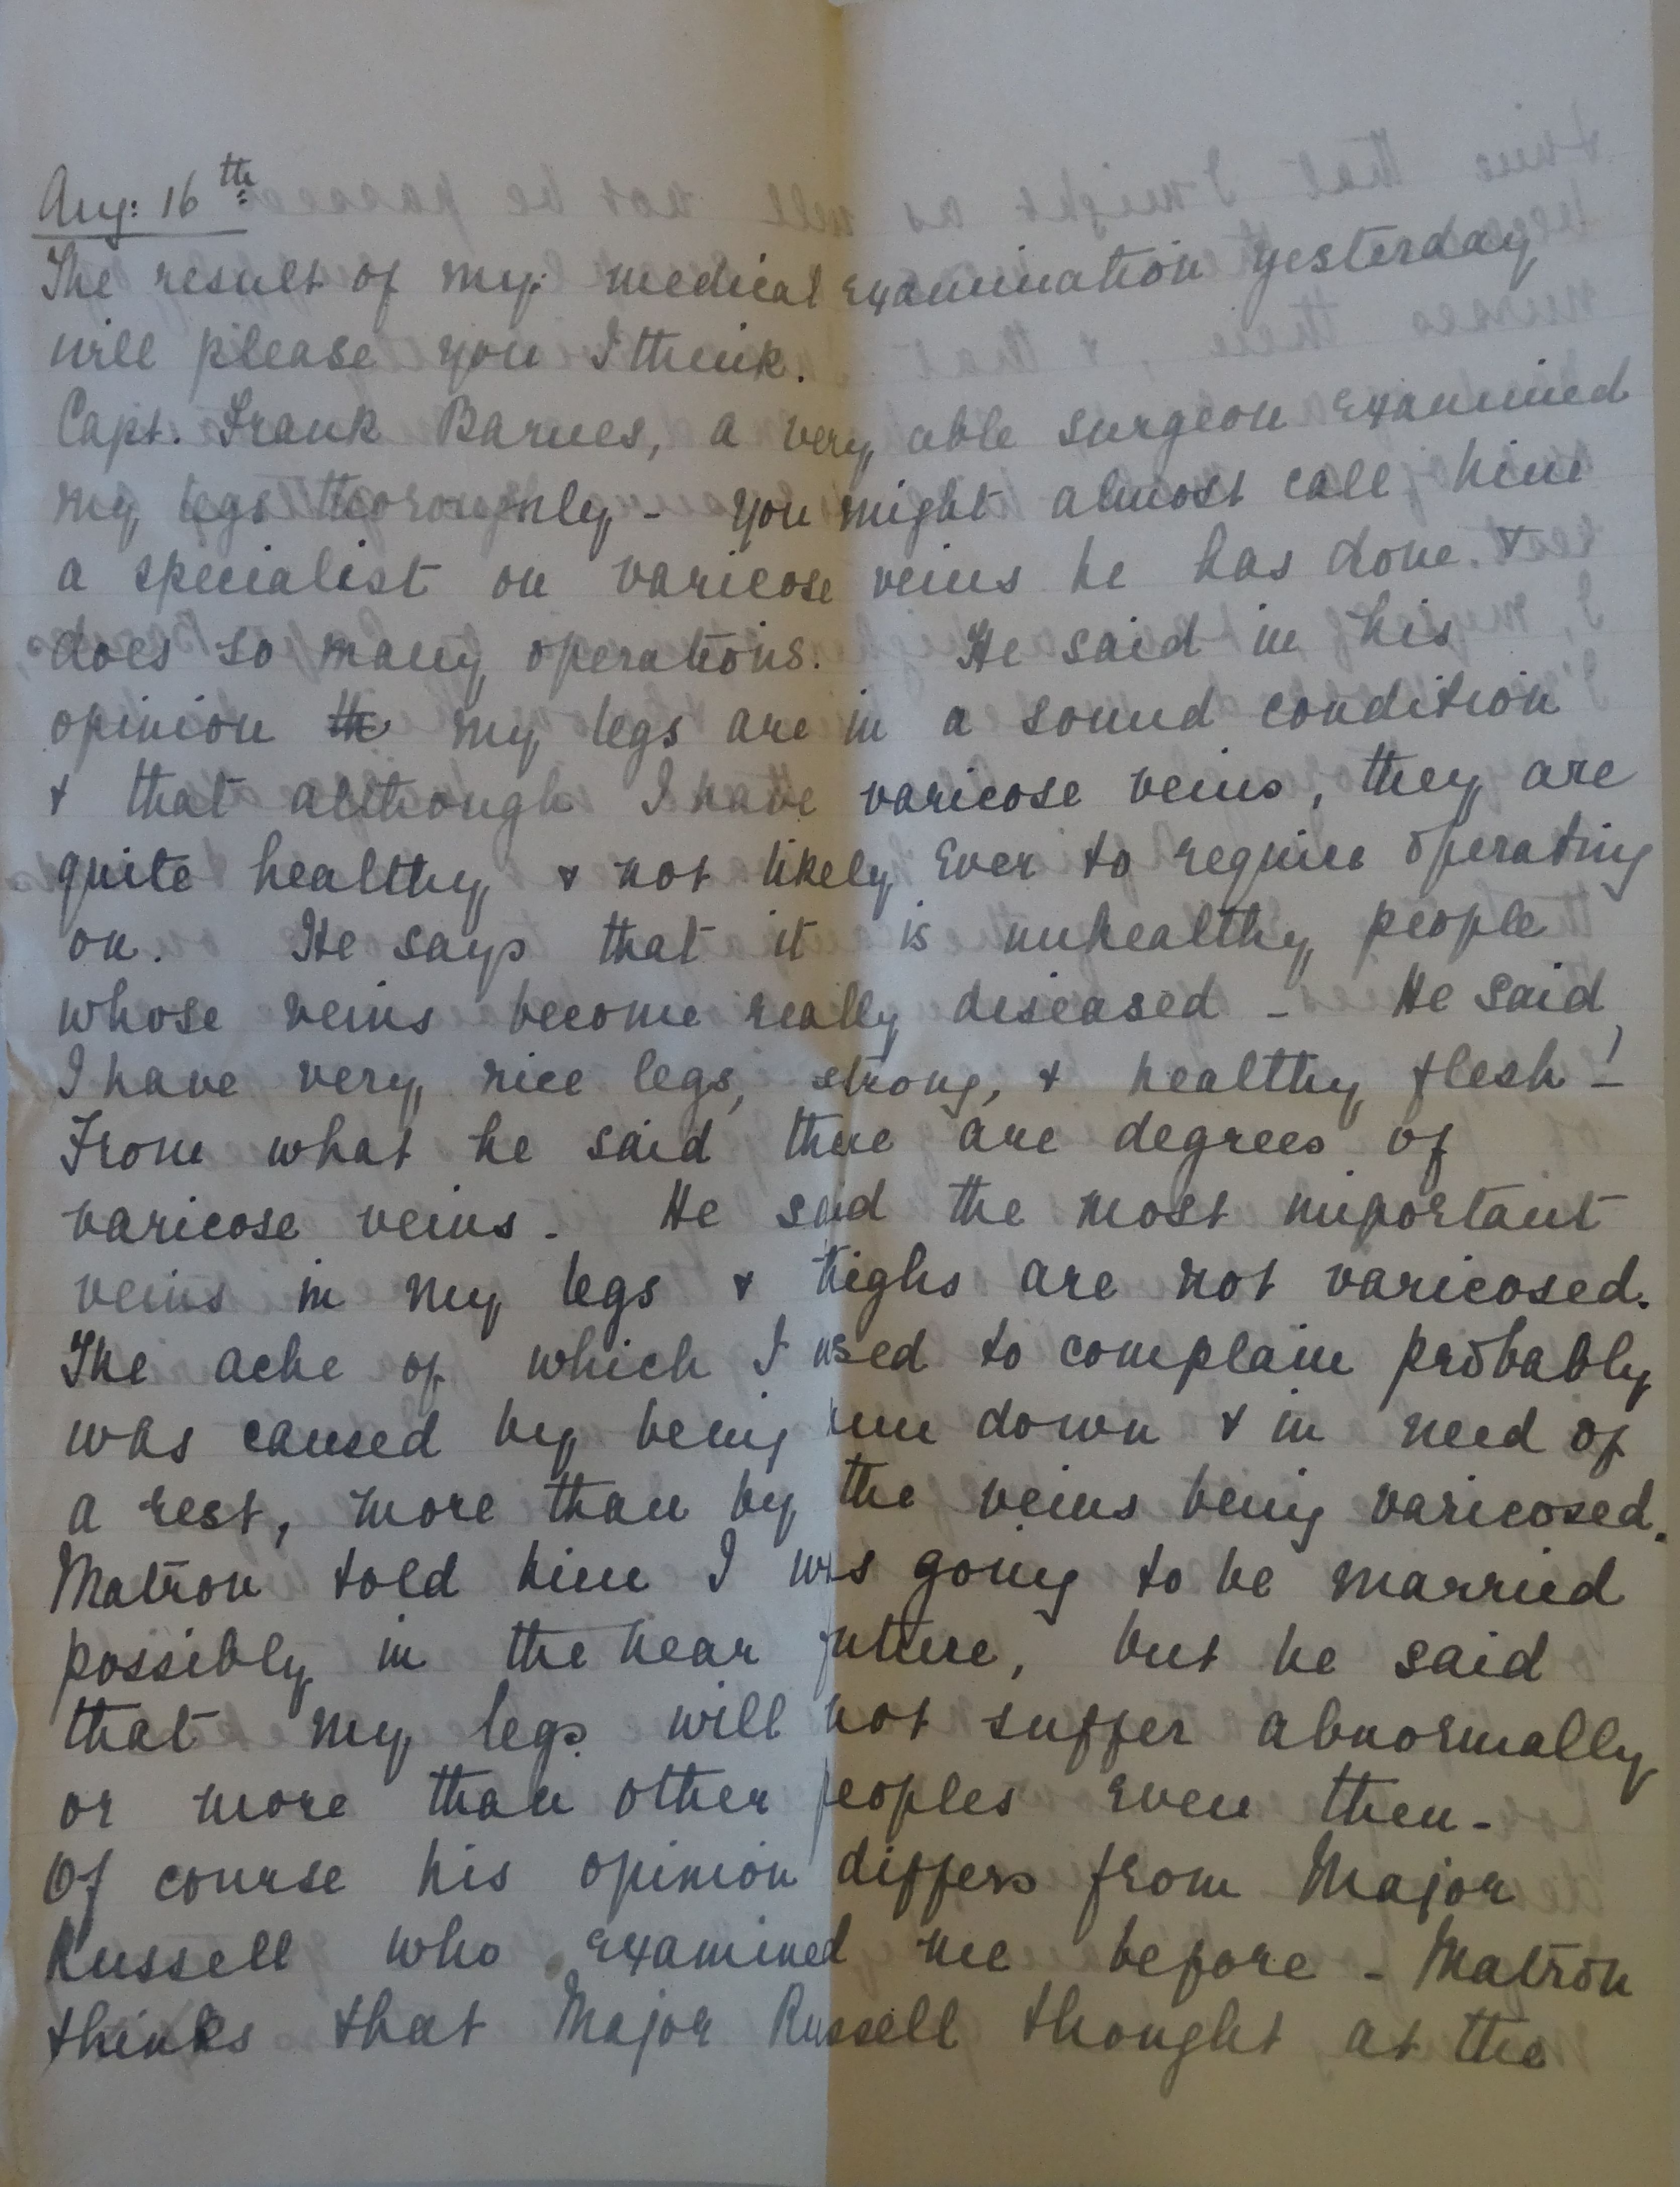 Aug: 16th
The result of my: medical examination yesterday
will please you I think.
Capt. Frank Barnes, a very able surgeon examined
my legs thoroughly - you might almost call him
a specialist on varicose veins he has done. &
does so many operations. He said in his
opinion th my legs are in a sound condition
& that although I have varicose veins, they are
quite healthy & not likely ever to require operating
on. He says that it is unhealthy people
whose veins become really diseased - He said,
I have very nice legs, strong, & healthy flesh! -
From what he said there are degrees of
varicose veins. He said the most important
veins in my legs & thighs are not varicosed.
The ache of which I used to complain probably
was caused by being run down & in need of
a rest, more than by the veins being varicosed.
Matron told him I was going to be married
possibly in the near future, but he said
that my legs will not suffer abnormally
or more than other peoples even then -
Of course his opinion differs from Major
Russell who examined me before - Matron
thinks that Major Russell thought at the